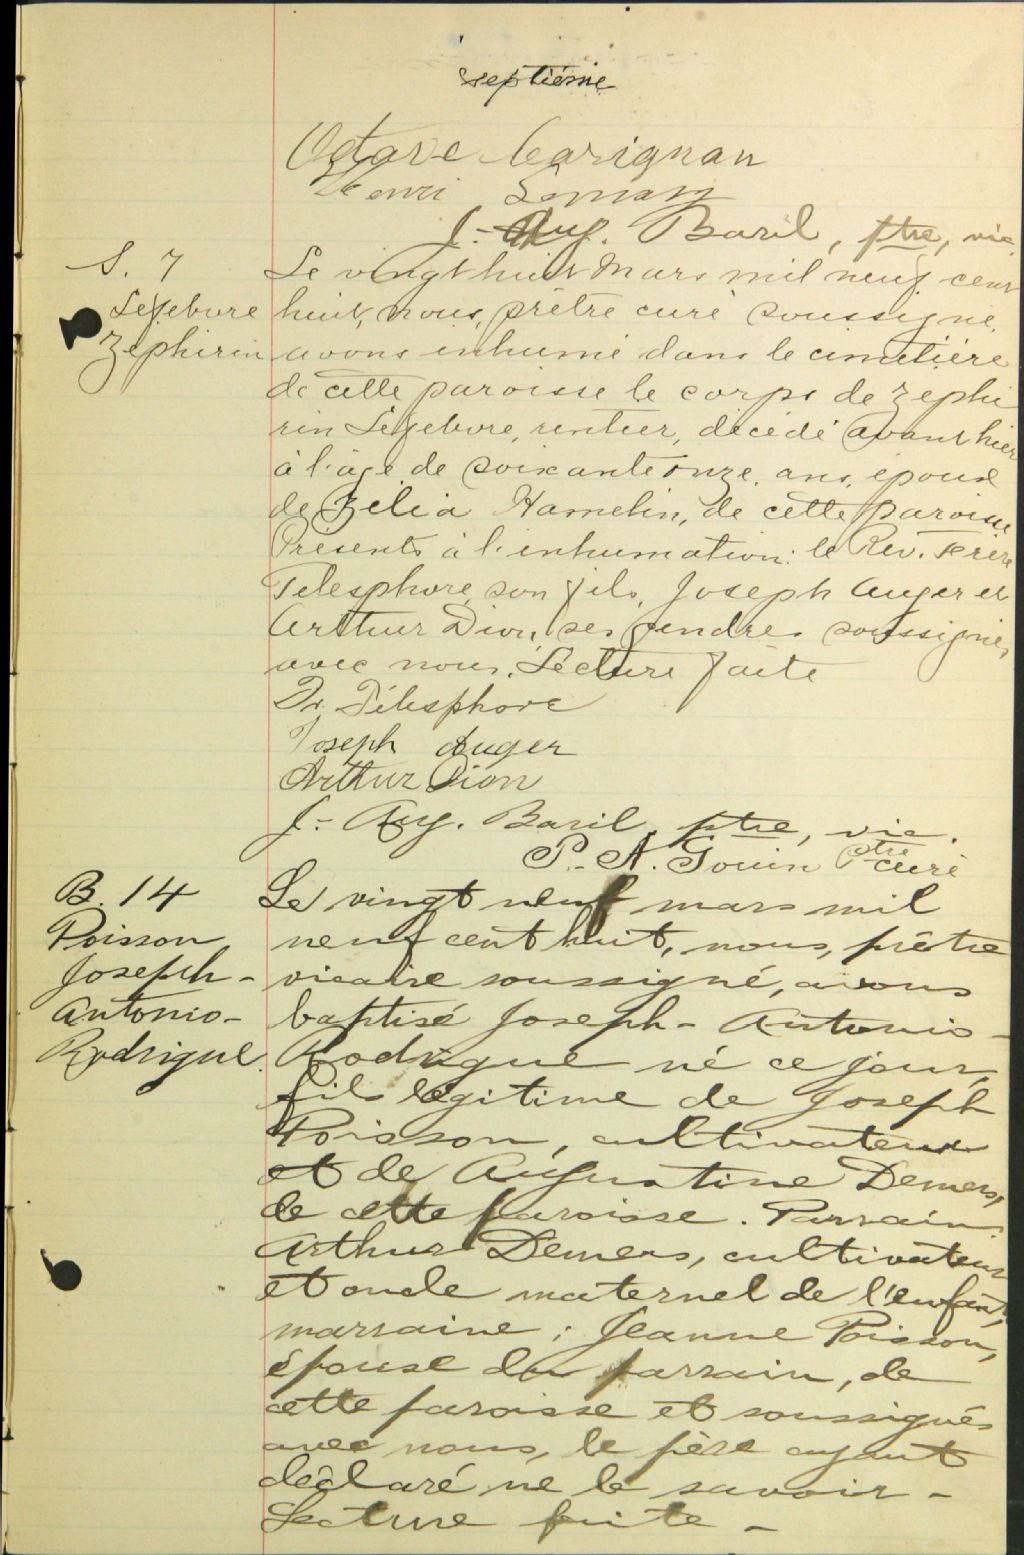 septième
Octave Carignan
Henri Lemay
J.-Aug. Baril, ptre, vic.
S. 7
Lefebvre
Zephirin
Le vingt huit Mars mil neuf cent
huit, nous, prêtre curé soussigné,
avons inhumé dans le cimetière
de cette paroisse le corps de Zephi
rin Lefebvre, rentier, décédé avant hier
à l'âge de soixante onze ans, époux
de Zelia Hamelin, de cette paroisse
Présents à l'inhumation: le Rév. Frère
Telesphore, son fils, Joseph Auger et
Arthur Dion, ses gendres soussignés,
avec nous. Lecture faite
Fr. Télesphore
Joseph Auger
Arthur Dion
J.- Aug. Baril, ptre, vic.
P.-A. Gouin Ptre curé
B. 14
Poisson
Joseph-
Antonio-
Rodrigue
Le vingt neuf mars mil
neuf cent huit, nous, prêtre
vicaire soussigné, avons
baptisé Joseph-Antonio-
Rodrigue né ce jour,
fils légitime de Joseph
Poisson, cultivateur
et de Augustine Demers,
de cette paroisse. Parrain:
Arthur Demers, cultivateur
et oncle maternel de l'enfant,
marraine: Jeanne Poisson,
épouse du parrain, de
cette paroisse et soussignés
avec nous, le père ayant
déclaré ne le savoir -
Lecture faite -